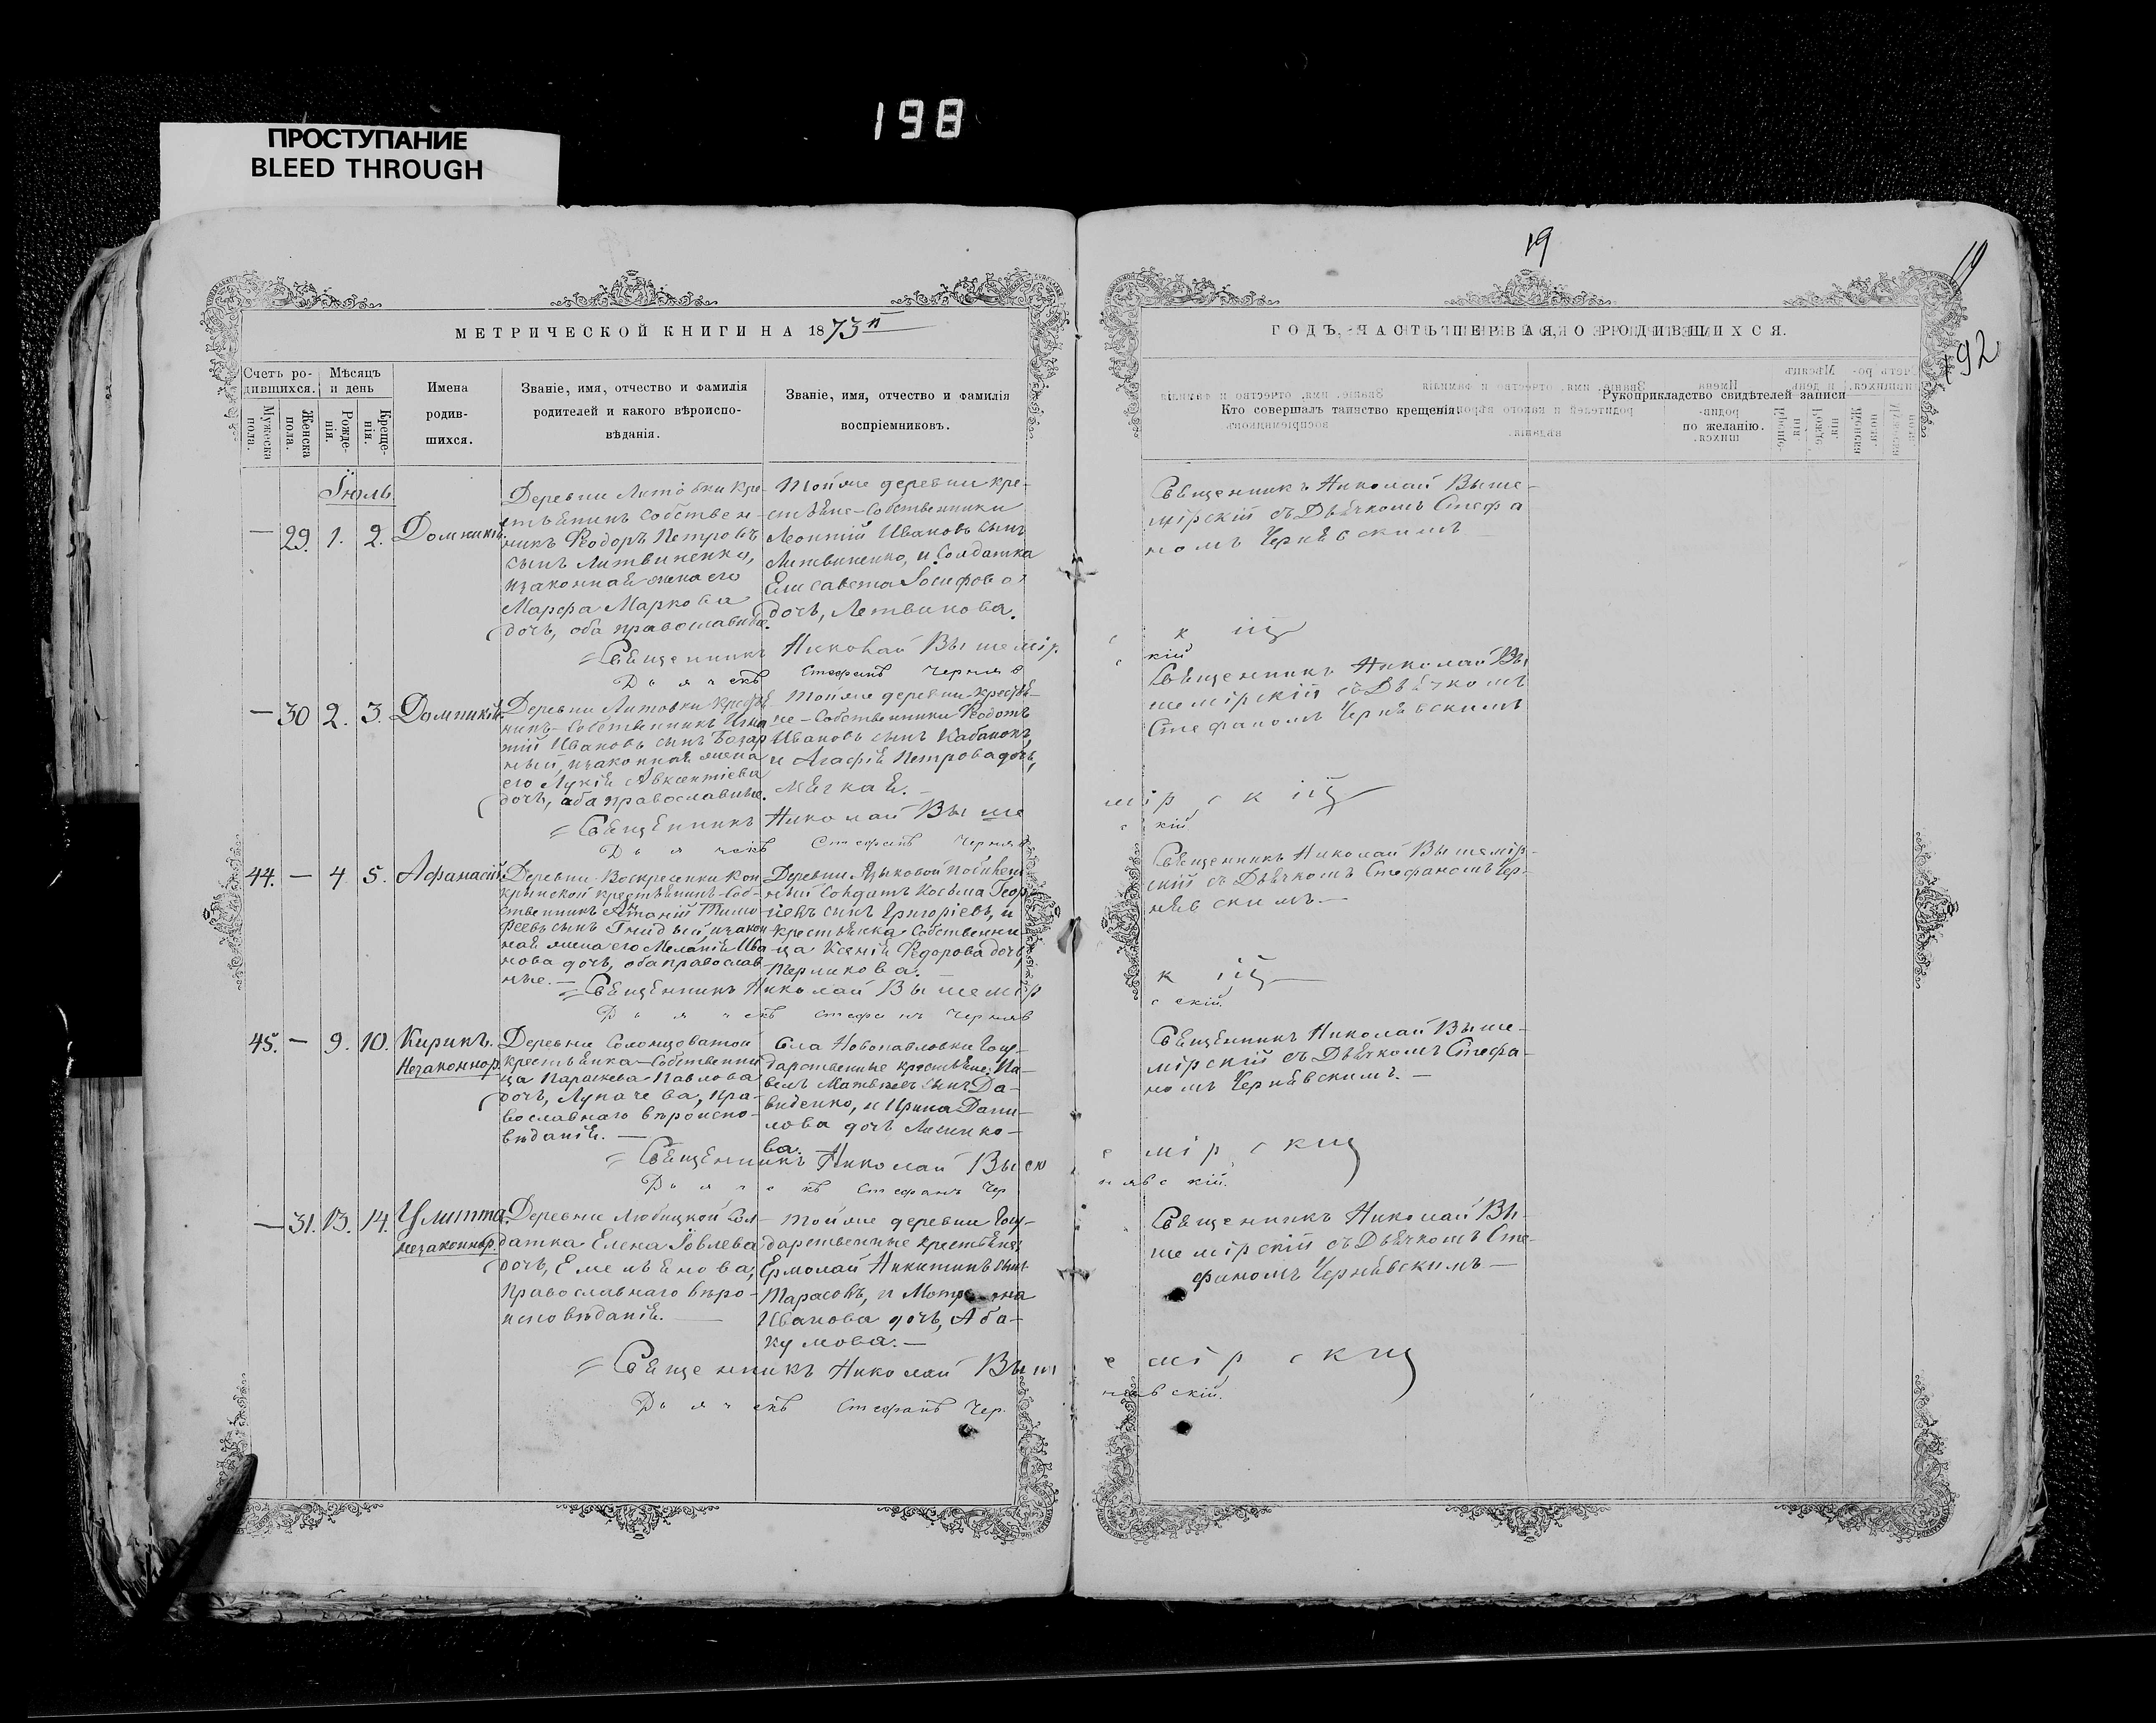 198
ПРОСТУПАНИЕ
BLEED THROUGH
МЕТРИЧЕСКОЙ КНИГИ НА 1873й
Счетъ ро-
дившихся.
Мужеска пола.
Женска пола.
Мѣсяцъ
и день
Рожде-
нія.
Креще-
нія.
Имена
родив-
шихся.
Званіе, имя, отчество и фамилія
родителей и какого вѣроиспо-
вѣданія.
Званіе, имя, отчество и фамилія
воспріемниковъ.
Іюль
— 29. 1. 2. Домникія.
Деревни Литовки кре-
стьянинъ собствен-
никъ Ѳеодоръ Петровъ
сынъ Литвиненко,
изаконная жена его
Марфа Маркова
дочь, оба православные.
Тойже деревни кре-
стьяне-собственники
Леонтій Ивановъ сынъ
Литвиненко, и Солдатка
Елисавета Іосифова
дочь, Летвинова.
Священникъ Николай Вышемір
Дьячекъ Стефанъ Черняв
— 30 2. 3. Домникія.
Деревни Литовки крестья-
нинъ-собственникъ Игна
тій Ивановъ сынъ Базар
ный, изаконная жена
его Лукія Авксентіева
дочь, оба православные.
Тойже деревни крестья-
не-Собственники Ѳедотъ
Ивановъ сынъ Кабанокъ,
и Агафія Петрова дочь,
Мягкая.
Священникъ Николай Выше
Дьячекъ Стефанъ Черняв
44. — 4 5. Афанасій.
Деревни Воскресенки Кон
кринской крестьянинъ-Соб-
ственникъ Антоній Тимо
феевъ сынъ Гнидый, изакон
ная жена его Меланія Ива
нова дочь, оба православ-
ные. —
Деревни Языковой
ный Солдатъ Косьма Геор
гіевъ сынъ Григоріевъ, и
крестьянка Собственни
ца Ксенія Ѳедорова дочь
Терликова.
Священникъ Николай Вышемір
Дьячекъ Стефанъ Черняв
45. — 9. 10. Кирикъ.
Незаконнор.
Деревни Солонцоватой
крестьянка-Собственни
ца Параскева Павлова
дочь, Лупачева, пра-
вославнаго вѣроиспо-
вѣданія. —
Села Новопавловки Госу-
дарственные крестьяне: Па-
велъ Матвѣевъ сынъ Да-
виденко, и Ирина Дани-
лова дочь Лисичко-
ва.
Священникъ Николай Выш
Дьячекъ Стефанъ Чер
— 31. 13. 14. Улитта.
незаконнор.
Деревни Любицкой Сол-
датка Елена Іовлева
дочь, Емельянова,
православнаго вѣро-
исповѣданія. —
Тойже деревни Госу-
дарственные крестьяне:
Ермолай Никитинъ сынъ
Тарасовъ, и Матрона
Иванова дочь, Аба-
кумова. —
Священникъ Николай Выш
Дьячекъ Стефанъ Чер.
19
19
192
ГОДЪ, ЧАСТЬ ПЕРВАЯ, О РОДИВШИХСЯ.
Кто совершалъ таинство крещенія.
Рукоприкладство свидѣтелей записи
по желанію.
Священникъ Николай Выше-
мірскій съ Дьячкомъ Стефа
номъ Чернявскимъ
скій
скій
Священникъ Николай Вы
шемірскій съ Дьячкомъ
Стефаномъ Чернявскимъ
мірскій
скій
Священникъ Николай Вышемір-
скій съ Дьячкомъ Стефаномъ Чер-
нявскимъ. —
скій
скій.
Священникъ Николай Выше-
мірскій съ Дьячкомъ Стефа-
номъ Чернявскимъ. —
емірскій
нявскій.
Священникъ Николай Вы-
шемірскій съ Дьячкомъ Сте-
фаномъ Чернявскимъ —
емірскій
нявскій.